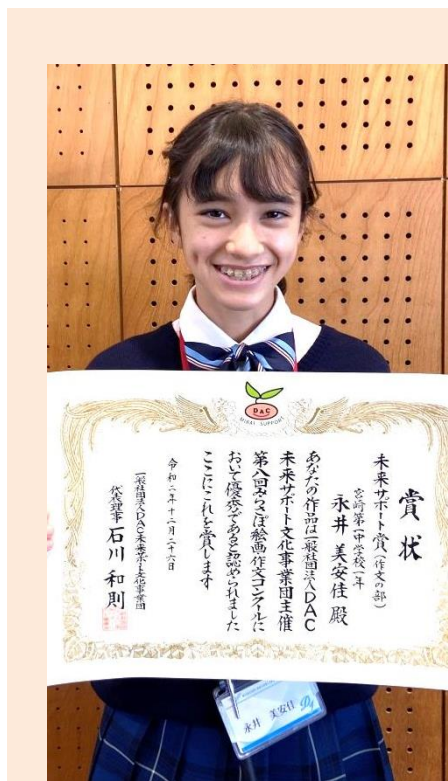 D&C
MIRAI SUPPORT
賞状
未来サポート賞（作文の部）
宮崎第一中学校一年
永井 美安佳 殿
あなたの作品は一般社団法人DAC
未来サポート文化事業団主催
第八回みらさぽ絵画作文コンクールに
おいて優秀であると認められました
ここにこれを賞します
令和二年十二月二十六日
一般社団法人DAC未来サポート文化事業団
代表理事 石川 和則
永井 美安佳